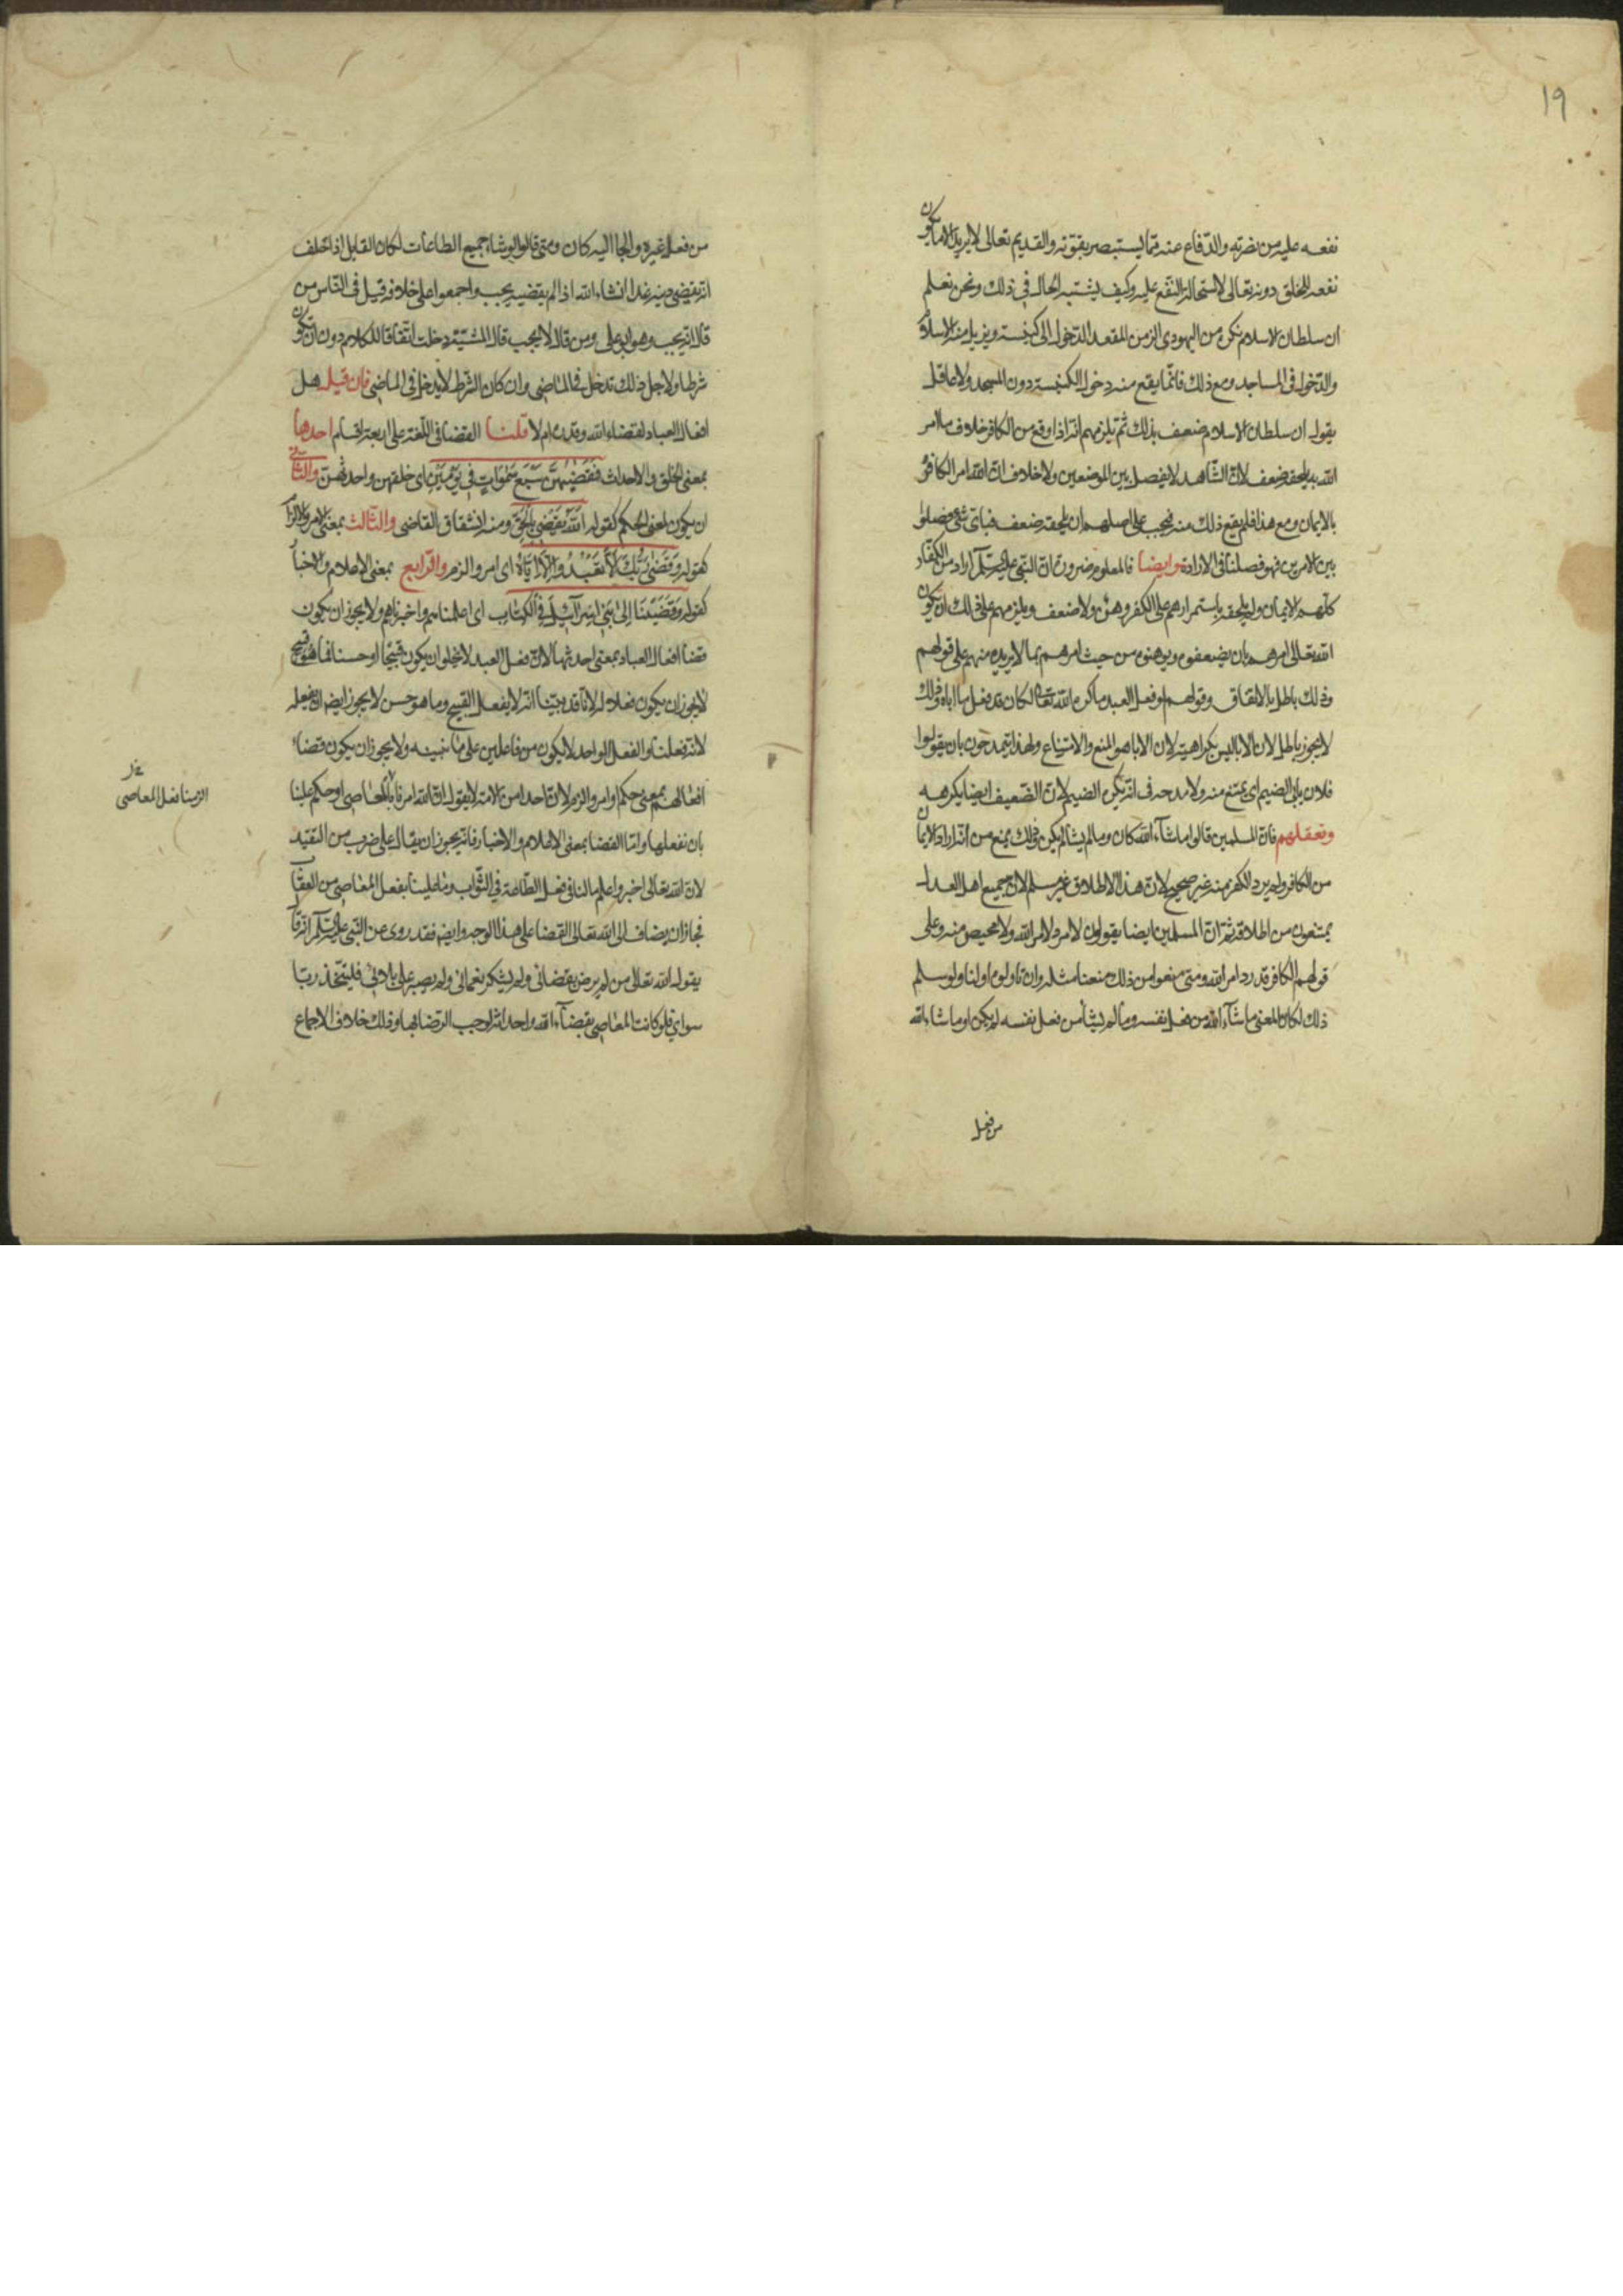 ١٩
نفعه عليه من نصرته والدفاع عنه مما يستبصر بقوته والقديم تعالى لا يريد الا ما يكون
نفعه للخلق دونه تعالى لاستحالة النفع عليه وكيف يشتبه الحال في ذلك ونحن نعلم
ان سلطان الاسلام يكره من اليهودى الزمن المقعد الدخول الى كنيسته ويريد منه الاسلام
والدخول فى المساجد ومع ذلك فانما يقع منه دخول الكنيسة دون المسجد ولا عاقل
يقول ان سلطان الاسلام ضعيف بذلك ثم يلزمهم انه اذا وقع من الكافر خلاف ما امر
الله به يلحقه ضعف لان الشاهد لا يفصل بين الموضعين ولا خلاف ان الله امر الكافر
بالايمان ومع هذا فلم يقع ذلك منه فيجب على اصلهم ان يلحقه ضعف فباى شئ فصلوا
بين الامرين فهو فصلنا فى الارادة وايضا فالمعلوم ضرورة ان النبى عليه السلم اراد من الكفار
كلهم الايمان ولم يلحقه باستمرارهم على الكفر وهن ولا ضعف ويلزمهم على ذلك ان يكون
الله تعالى امرهم بان يضعفوه ويوهنوه من حيث امرهم بما لا يريده منهم على قولهم
وذلك باطل بالاتفاق وقولهم لو فعل العبد ما كره الله تعالى لكان قد فعل ما اباه وذلك
لا يجوز باطل لان الابا ليس بكراهية لان الابا هو المنع والامتناع ولهذا يتمدحون بان يقولوا
فلان يابى الضيم اى يمتنع منه ولا مدحه فى انه يكره الضيم لان الضعيف ايضا يكرهه
وتعلقهم فان المسلمين قالوا ما شآء الله كان وما لم يشأ لم يكن وذلك يمنع من انه اراد الايمان
من الكافر ولم يرد الكفر منه غير صحيح لان هذا الاطلاق غير مسلم لان جميع اهل العدل
يمتنعون من اطلاقه ثم ان المسلمين ايضا يقولون لا مرد لامر الله ولا محيص منه وعلى
قولهم الكافر قد رد امر الله ومتى منعوا من ذلك منعنا مثله وان تاولوه اولنا ولو سلم
ذلك لكان المعنى ما شآء الله من فعل نفسه وما لم يشأ من فعل نفسه لم يكن او ما شاء الله
من فعل
من فعل غيره والجا اليه كان ومتى قالوا لو شاء جميع الطاعات لكان القايل اذا حلف
انه يقضى دينه غدا انشاء الله اذا لم يقضيه يحب واجمعوا على خلافه قيل فى الناس من
قال انه يجب وهو ابو على ومن قال لا يجب قال المشية دخلت اتفاقا للكلام دون ان يكون
شرطا ولاجل ذلك تدخل فى الماضى وان كان الشرط لا يدخل فى الماضى فان قيل هل
افعال العباد بقضاء الله وقدره ام لا قلنا القضا فى اللغة على اربعة اقسام احدها
بمعنى الخلق والاحداث فَقَضٰيهُنَّ سَبْعَ سَمٰوَاتٍ فى يَوْمَيْنِ اى خلقهن واحدثهن والثانى
ان يكون بمعنى الحكم كقوله اللّٰهُ يَقْضِى بِالْحَقِّ ومنه اشتقاق القاضى والثالث بمعنى الامر والالزام
كقوله وَقَضٰى رَبُّكَ اَلّا تَعْبُدُوا اِلّا اِيَّاهُ اى امر والزم والرابع بمعنى الاعلام والاخبار
كقوله وَقَضَيْنَا اِلٰى بَنى اِسْرآئيلَ فى الْكِتٰابِ اى اعلمناهم واخبرناهم ولا يجوز ان يكون
قضا افعال العباد بمعنى احدثها لان فعل العبد لا يخلو ان يكون قبيحا او حسنا فما هو قبيح
لا يجوز ان يكون فعلا له لانا قد بينا انه لا يفعل القبيح وما هو حسن لا يجوز ايضا ان يفعله
لانه فعلنا والفعل الواحد لا يكون من فاعلين على ما نبينه ولا يجوز ان يكون قضاء
افعالهم بمعنى حكم او امر والزم لان احدا من الامة لا يقول ان الله امرنا بالمعاصى او حكم علينا
بان نفعلها واما القضا بمعنى الاعلام والاخبار فانه يجوز ان يقال على ضرب من التقييد
لان الله تعالى اخبر واعلم ما لنا فى فعل الطاعة من الثواب وما علينا بفعل المعاصى من العقاب
فجاز ان يضاف الى الله تعالى القضا على هذا الوجه وايضا فقد روى عن النبى عليه السلم انه قال
يقول الله تعالى من لم يرض بقضائى ولم يشكر نعمائى ولم يصبر على بلائى فليتخذ ربا
سواى فلو كانت المعاصى بقضآء الله واحداثه لوجب الرضا بها وذلك خلاف الاجماع
الزمنا فعل المعاصى